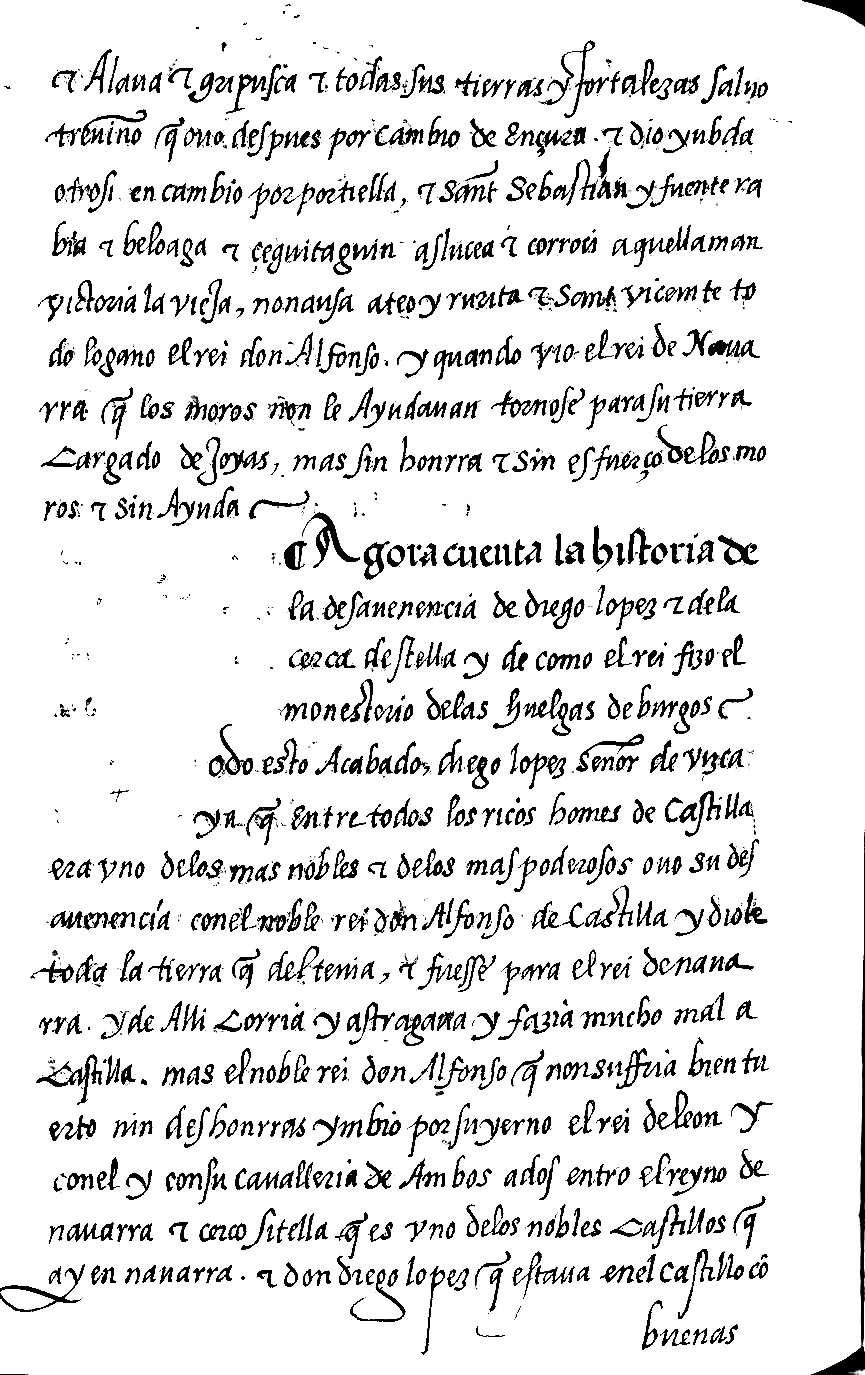 ⁊ Alaua ⁊ gripusca ⁊ todas sus tierras y fortalezas saluo
treuiño q̃ ouo despues por cambio de Ençura. ⁊ dio yubda
otrosi en cambio por portiella, ⁊ Sant Sebastian y fuente ra
bia ⁊ beloaga ⁊ çeguitaguin aslucea ⁊ corroci aquellaman
victoria la vieja, nonausa ateo y rurita ⁊ Sant vicemte to
do logano el rei don Alfonso. y quando vio el rei de Naua
rra q̃ los moros non le Ayudauan tornose para su tierra
Cargado de Joyas, mas sin honrra ⁊ sin esfuerço de los mo
ros ⁊ sin Ayuda
¶ Agora cuenta la historia de
la desauenencia de diego lopez ⁊ dela
cerca destella y de como el rei fizo el
monesterio delas huelgas de burgos
odo esto Acabado, diego lopez señor de vizca
ya q̃ entre todos los ricos homes de Castilla
era vno delos mas nobles ⁊ delos mas poderosos ouo su des
auenencía conel noble rei don Alfonso de Castilla y diole
toda la tierra q̃ del tenia, ⁊ fuesse para el rei de naua
rra. y de Alli Corria y astragaua y fazia mucho mal a
Castilla. mas el noble rei don Alfonso q̃ non suffria bien tu
erto nin deshonrras ymbio por su yerno el rei de leon y
conel y con su cavalleria de Ambos ados entro el reyno de
nauarra ⁊ cerco sitella q̃ es vno delos nobles Castillos q̃
ay en nauarra. ⁊ don diego lopez q̃ estaua enel Castillo cõ
buenas